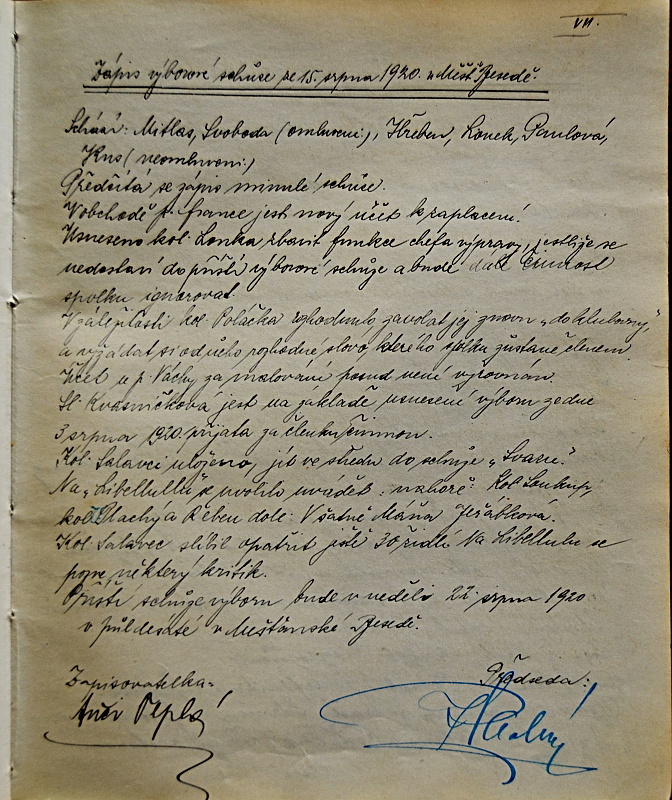 VII.
Zápis výborové schůze ze 15. srpna 1920. v Měšť. Besedě.
Schází: Mitlas, Svoboda (omluveni), Hřeben, Louck, Paulová,
Kus (neomluveni)
Předčítá se zápis minulé schůze.
V obchodě p. France jest nový účet k zaplacení.
Usneseno kol. Louka zbavit funkce chefa výpravy, jestliže se
nedostaví do příští výborové schůze a bude dále činnost
spolku ignorovat.
V záležitosti kol. Poláčka rozhodnuto zavolat jej znovu „do klubovny,“
a vyžádat si od něho rozhodné slovo, kterého spolku zůstane členem.
Účet u p. Váchy za malování posud není vyrovnán.
Sl. Kvasničková jest na základě usnesení výboru ze dne
3 srpna 1920. přijata za členku činnou.
Kol. Salavci uloženo, jít ve středu do schůze „Svazu“.
Na „Libellullu“ se uvolili uvádět: nahoře: kol. Soukup,
kol. Plachý a Řeben dole: V šatně Máňa Jeřábková.
Kol. Salavec slíbil opatřit ještě 30 židlí Na Libellulu se
pozve některý kritik.
Příští schůze výboru bude v neděli 22. srpna 1920
v půl desáté v Měšťanské Besedě.
Zapisovatelka: Předseda:
Anči Teplá Plachý